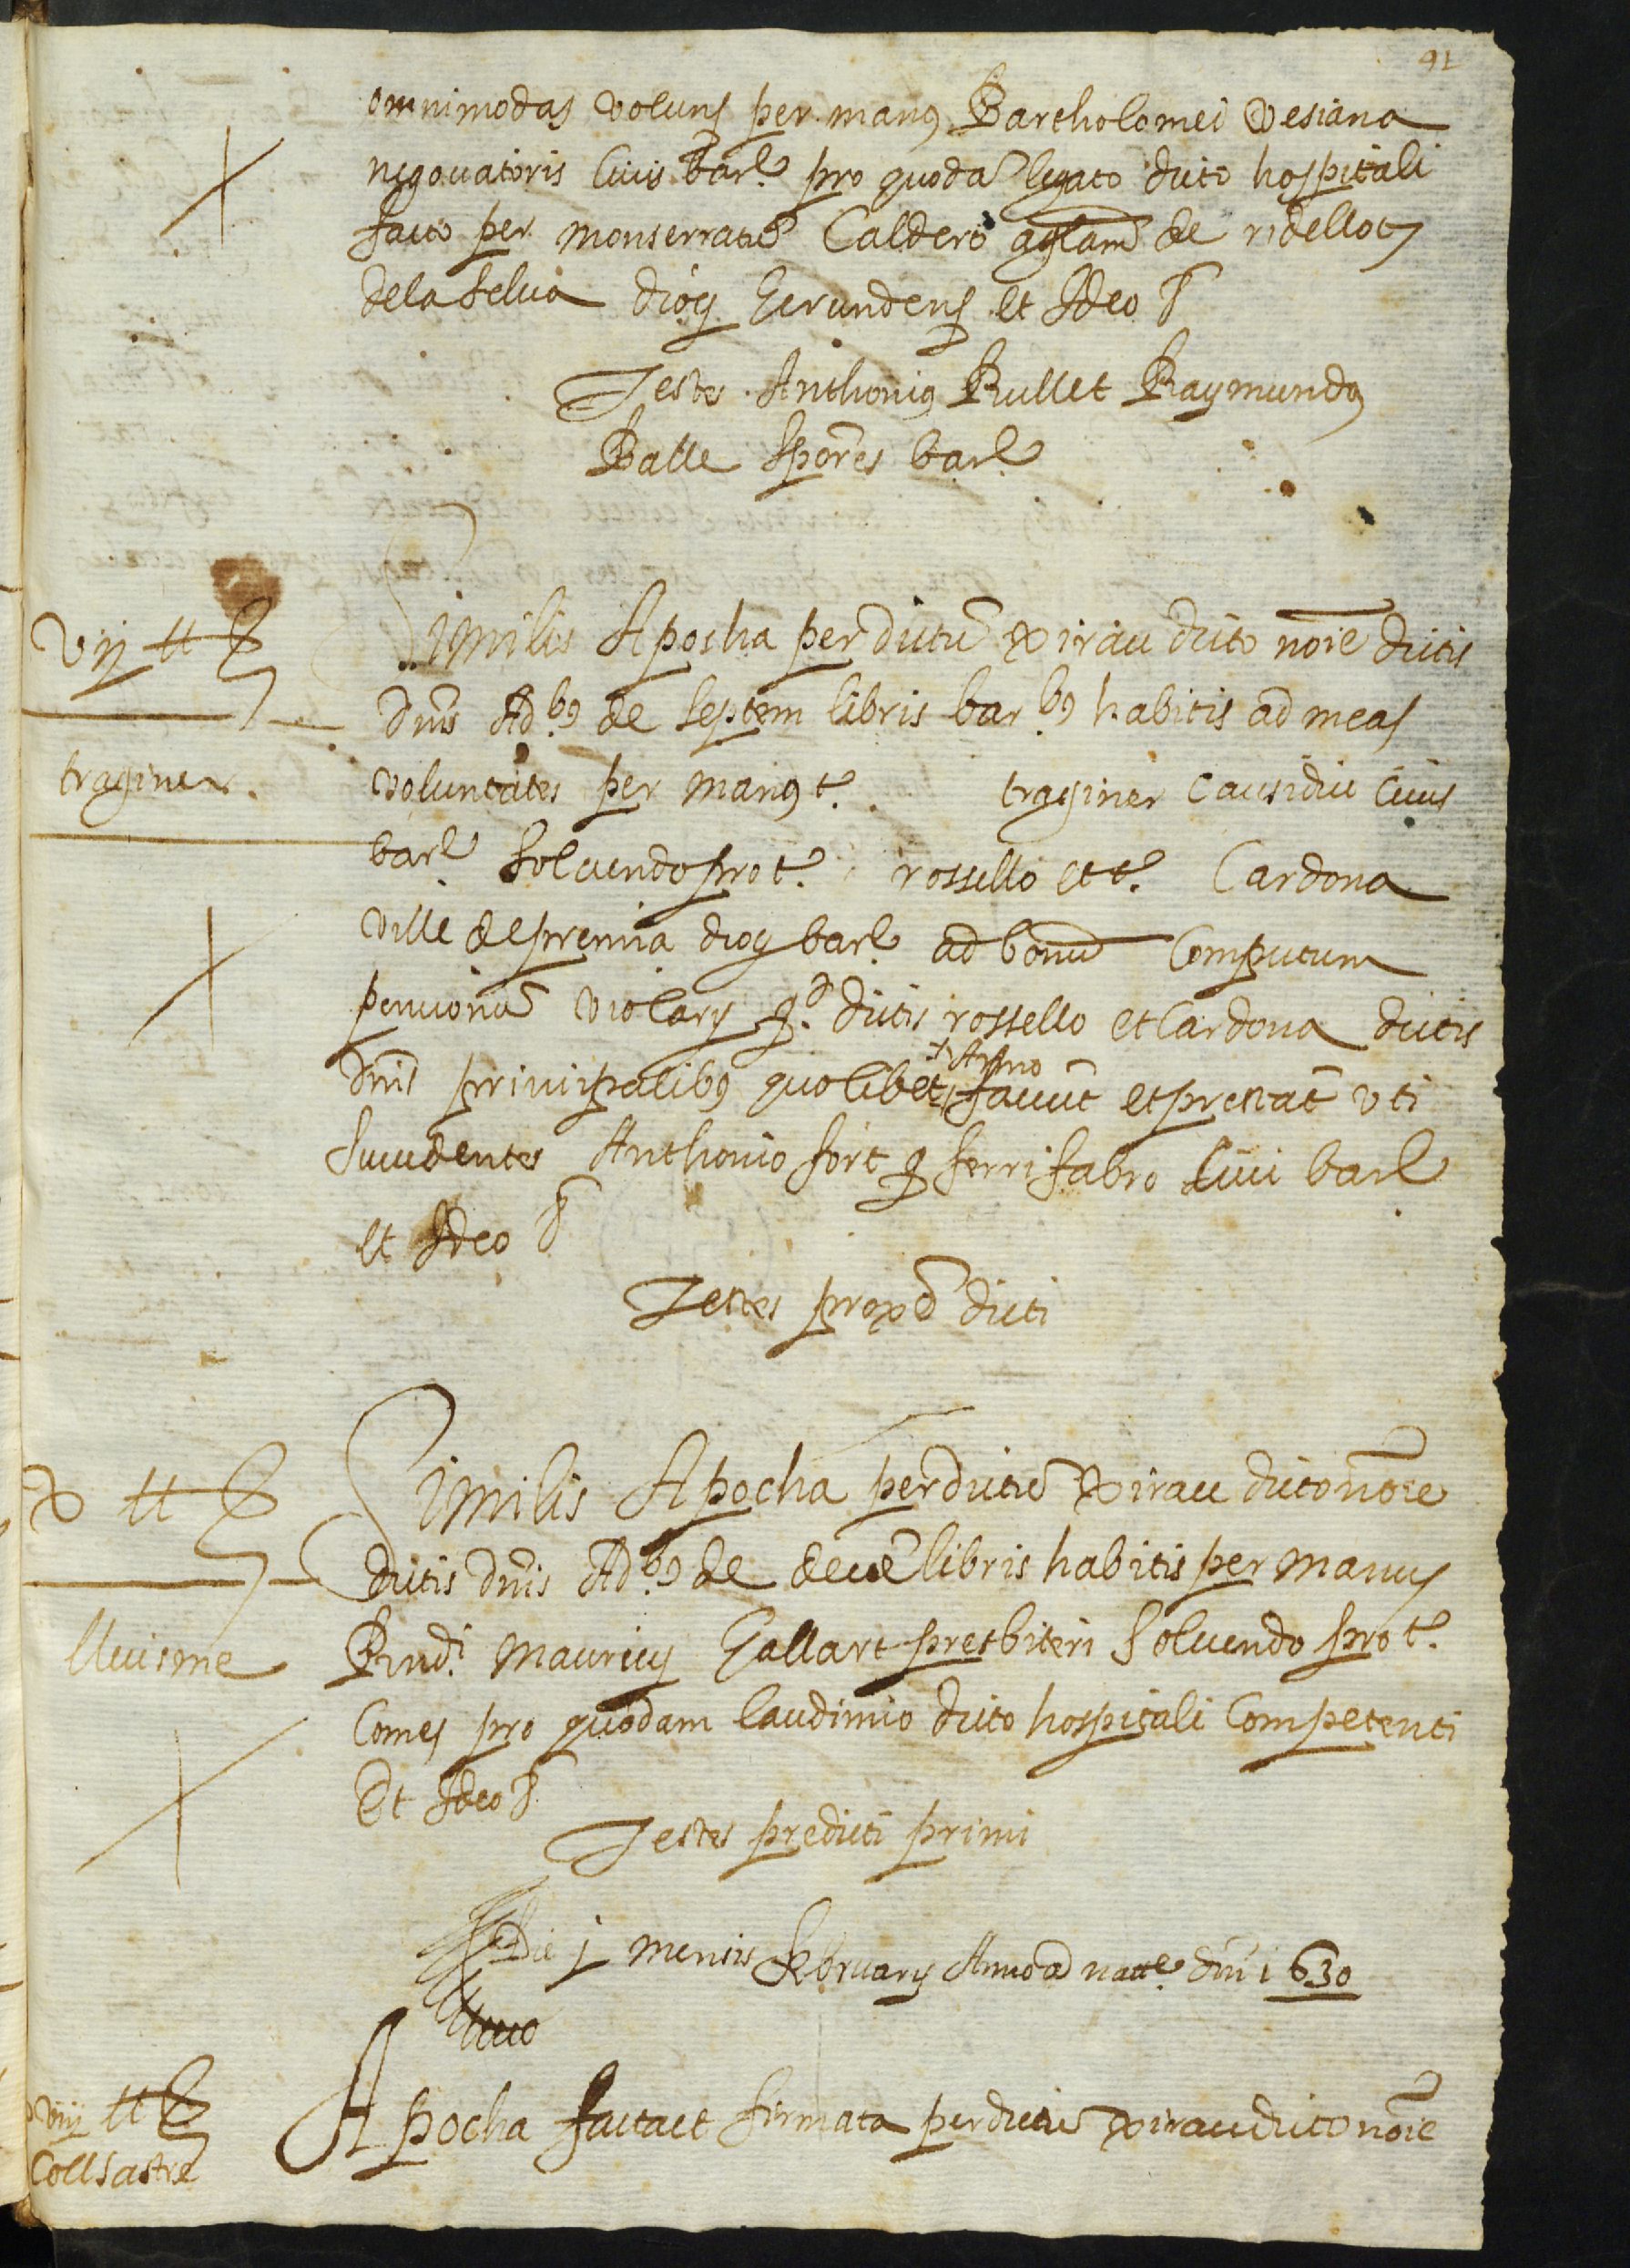 91
omnimodas voluns per manꝰ Bartholomei Vesiana
negociatoris Civis barle pro quodã legato dicto hospitali
facto per monserratũ Caldero de ridellots
dela selva diog Gerundens et Ideo &
Testes Anthoniꝰ Rullet Raymundꝰ
Balle Spores barle
vij ℔ ß
traginer.
Similis Aposha per dictũ Xirau dicto noĩe dictis
dnis Ad.bꝰ de septem libris bar.bꝰ habitis ad meas
voluntates per manꝰ t. traginer Causidici Civis
barle solvendo pro t. rossello et t. Cardona
ville de premia diog barle ad bonũ Computum
pencionũ violarij q.d dictis rossello et Cardona dictis
+ Anno
dnis principalibꝰ quolibet faciũt et prestãt uti
succedentes Anthonio fort q ferri fabro Civi barle
et Ideo &
Testes proxẽ dicti
X ℔ ß
lluisme
Similis Apocha per dictũ Xirau dicto noĩe
dictis dnis Ad.bꝰ de decẽ libris habitis per manus
Rnd.i Mauricij Gallart presbiteri solvendo pro t.
Comes pro quodam laudimio dicto hospitali Competenti
Et Ideo &
Testes predicti primi
Die j mensis februarij Anno a natte dni 1630
viij ℔ ß
Coll sastre
Apocha facta et firmata per dictũ Xirau dicto noĩe